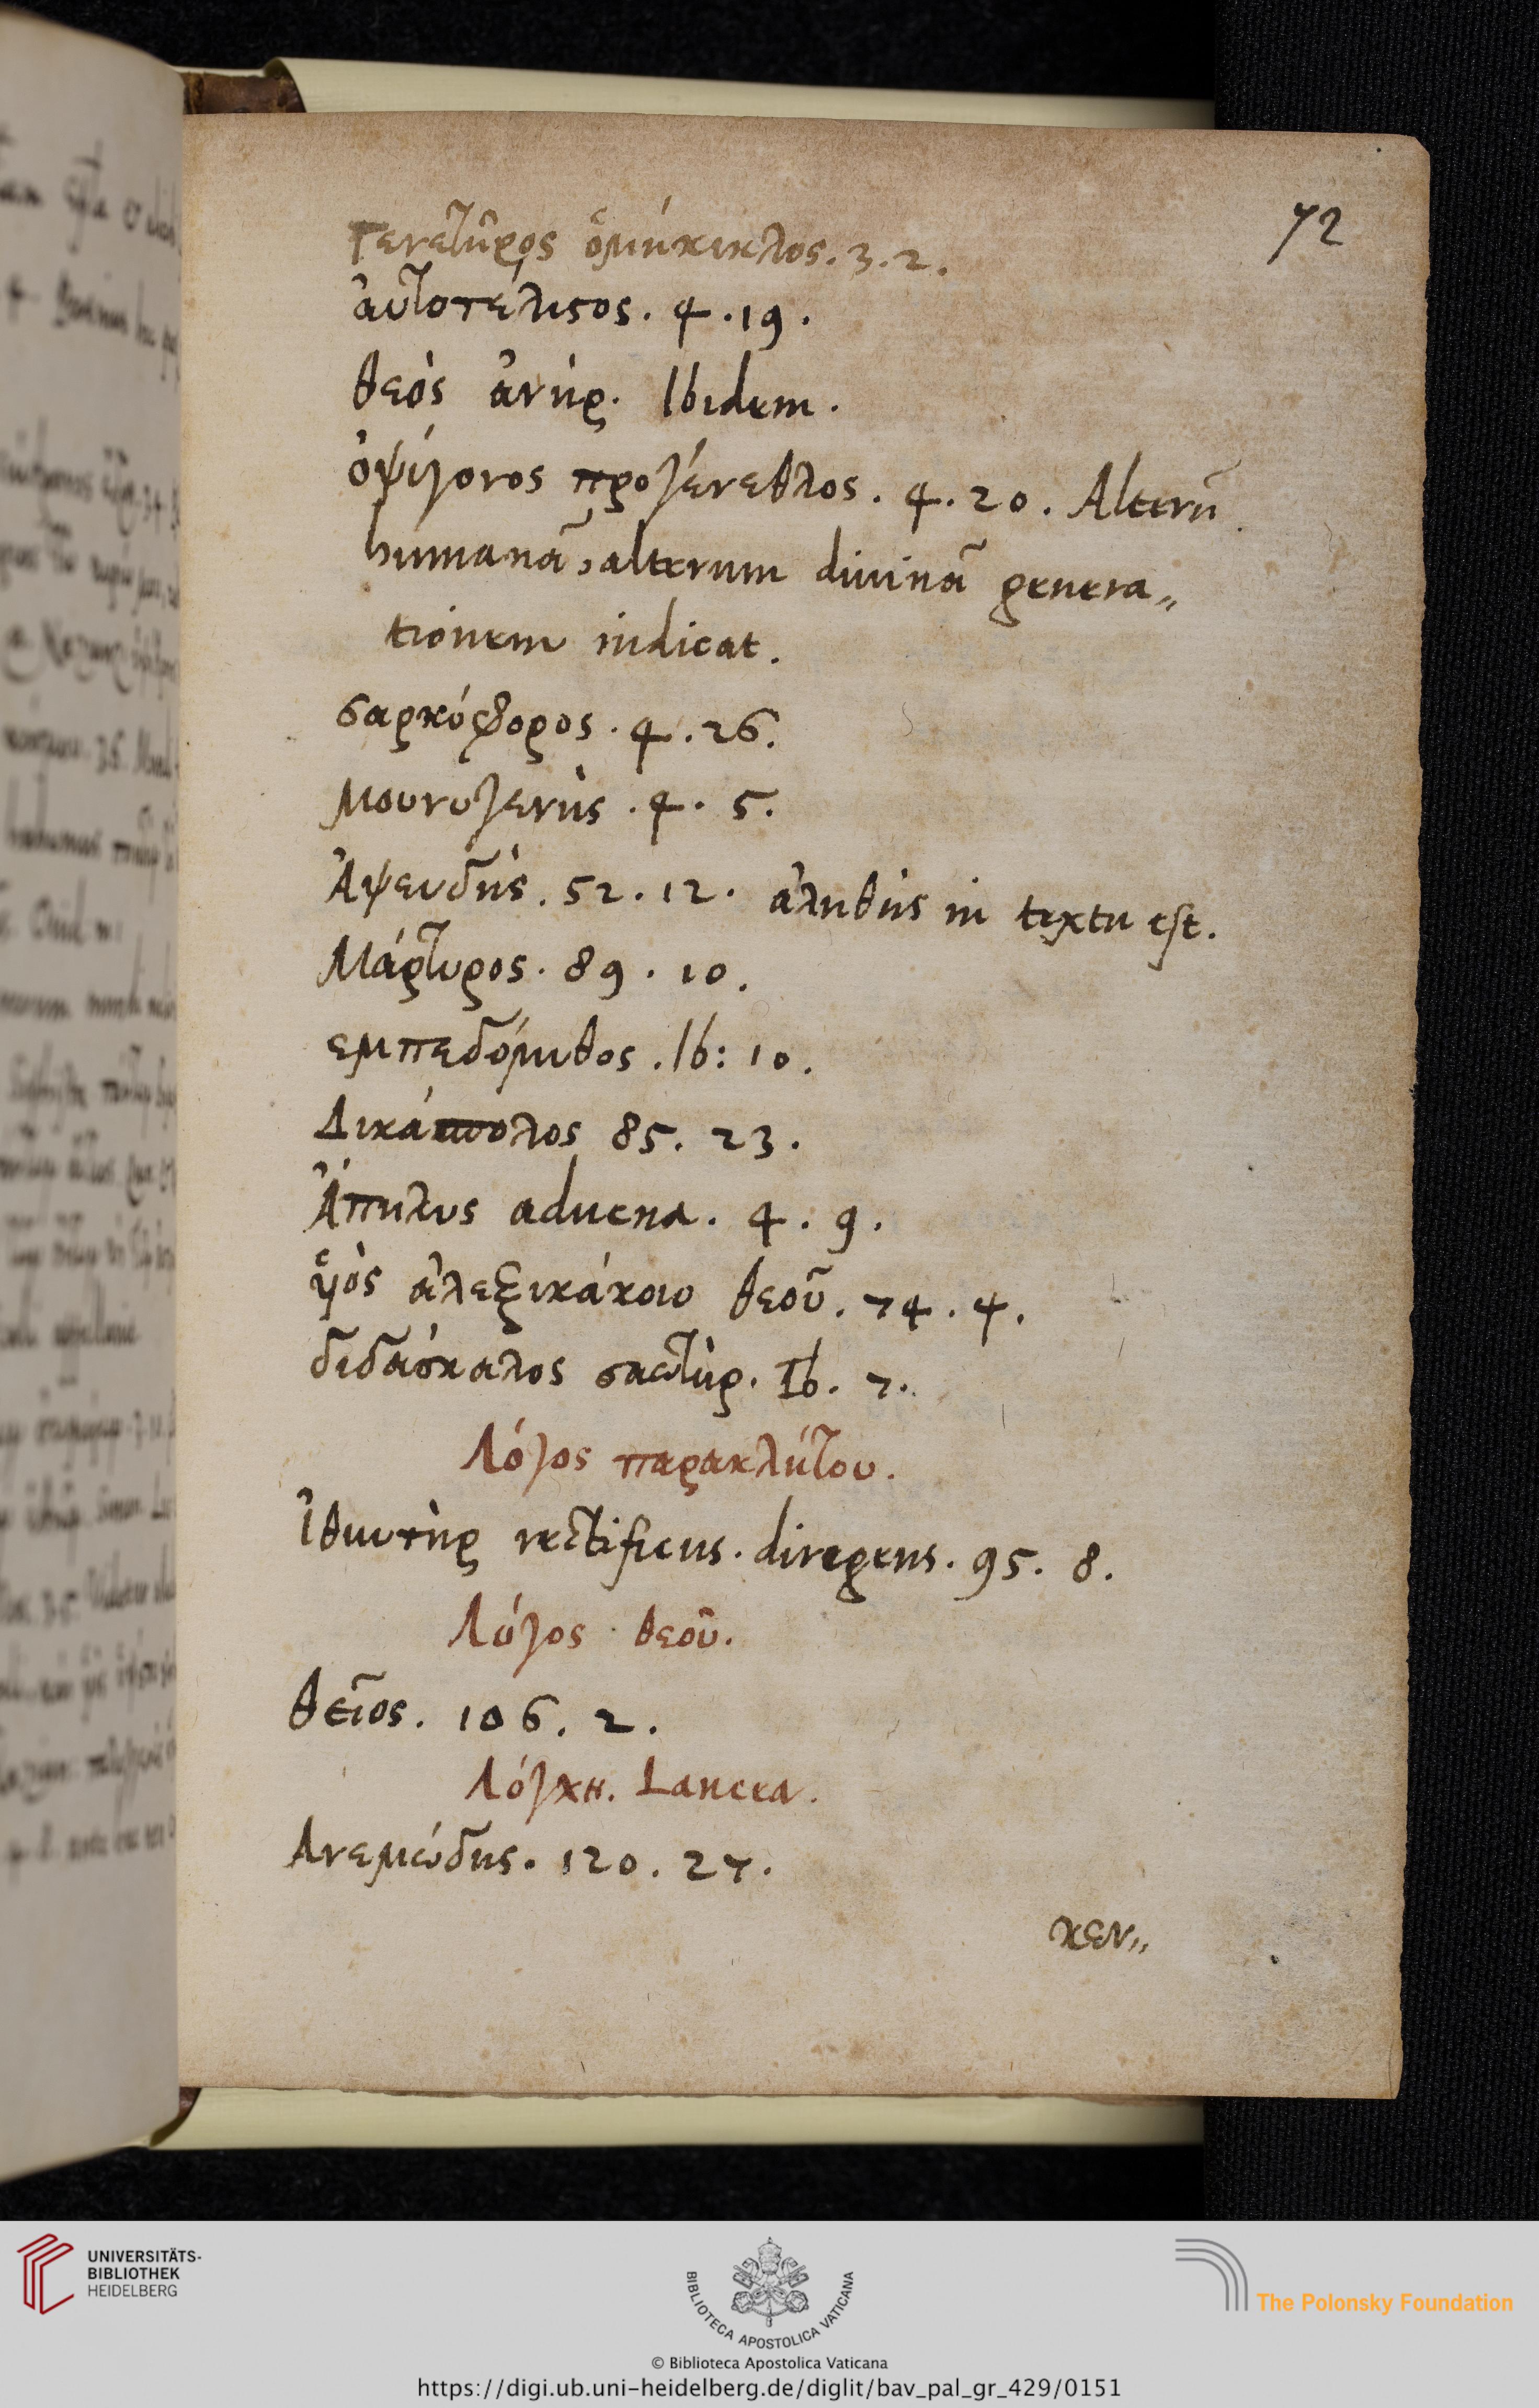 72
Γενετῆρος ὁμήλικικλος. 3. 2.
ἀυτοτέλεστος. 4. 19.
θεὸς ἀνὴρ. Ibidem.
ὀψίγονος προγένεθλος. 4. 20. Alterū
humanā, alterum diuinā genera„
tionem indicat.
σαρκόφορος. 4. 26.
Μουνογενὴς. 4. 5.
Ἀψευδὴς. 52. 12. ἀληθὴς in textu est.
Μάρτυρος. 89. 10.
εμπεδόμυθος. Ib: 10.
Δικάσπολος 85. 23.
Ἄπηλυς aduena. 4. 9.
ὑιὸς ἀλεξικάκοιο θεοῦ. 74. 4.
διδάσκαλος σαωτὴρ. Ib. 7.
Λόγος παρακλήτου.
Ἰθυντὴρ rectificus. diregens. 95. 8.
Λόγος θεοῦ.
θεῖος. 106. 2.
Λόγχη. Lancea.
Ανεμώδης. 120. 27.
κεν„
UNIVERSITÄTS-
BIBLIOTHEK
HEIDELBERG
BIBLIOTECA APOSTOLICA VATICANA
The Polonsky Foundation
© Biblioteca Apostolica Vaticana
https://digi.ub.uni-heidelberg.de/diglit/bav_pal_gr_429/0151